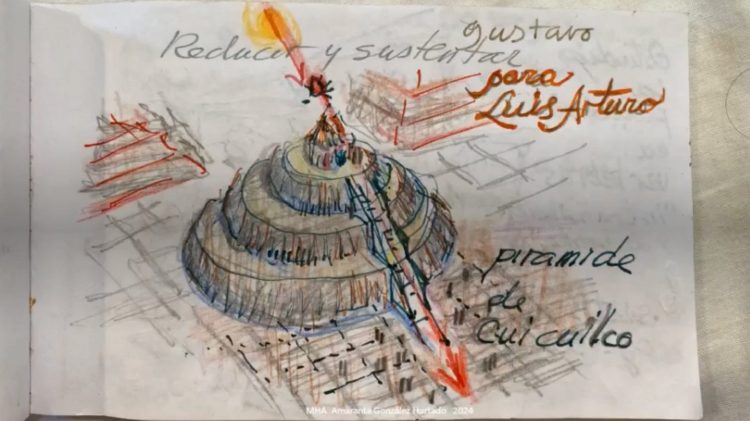 gustavo
Reducir y sustentar
para
Luis Arturo
piramide
de
Cuicuilco
MHA Amaranta González Hurtado 2024